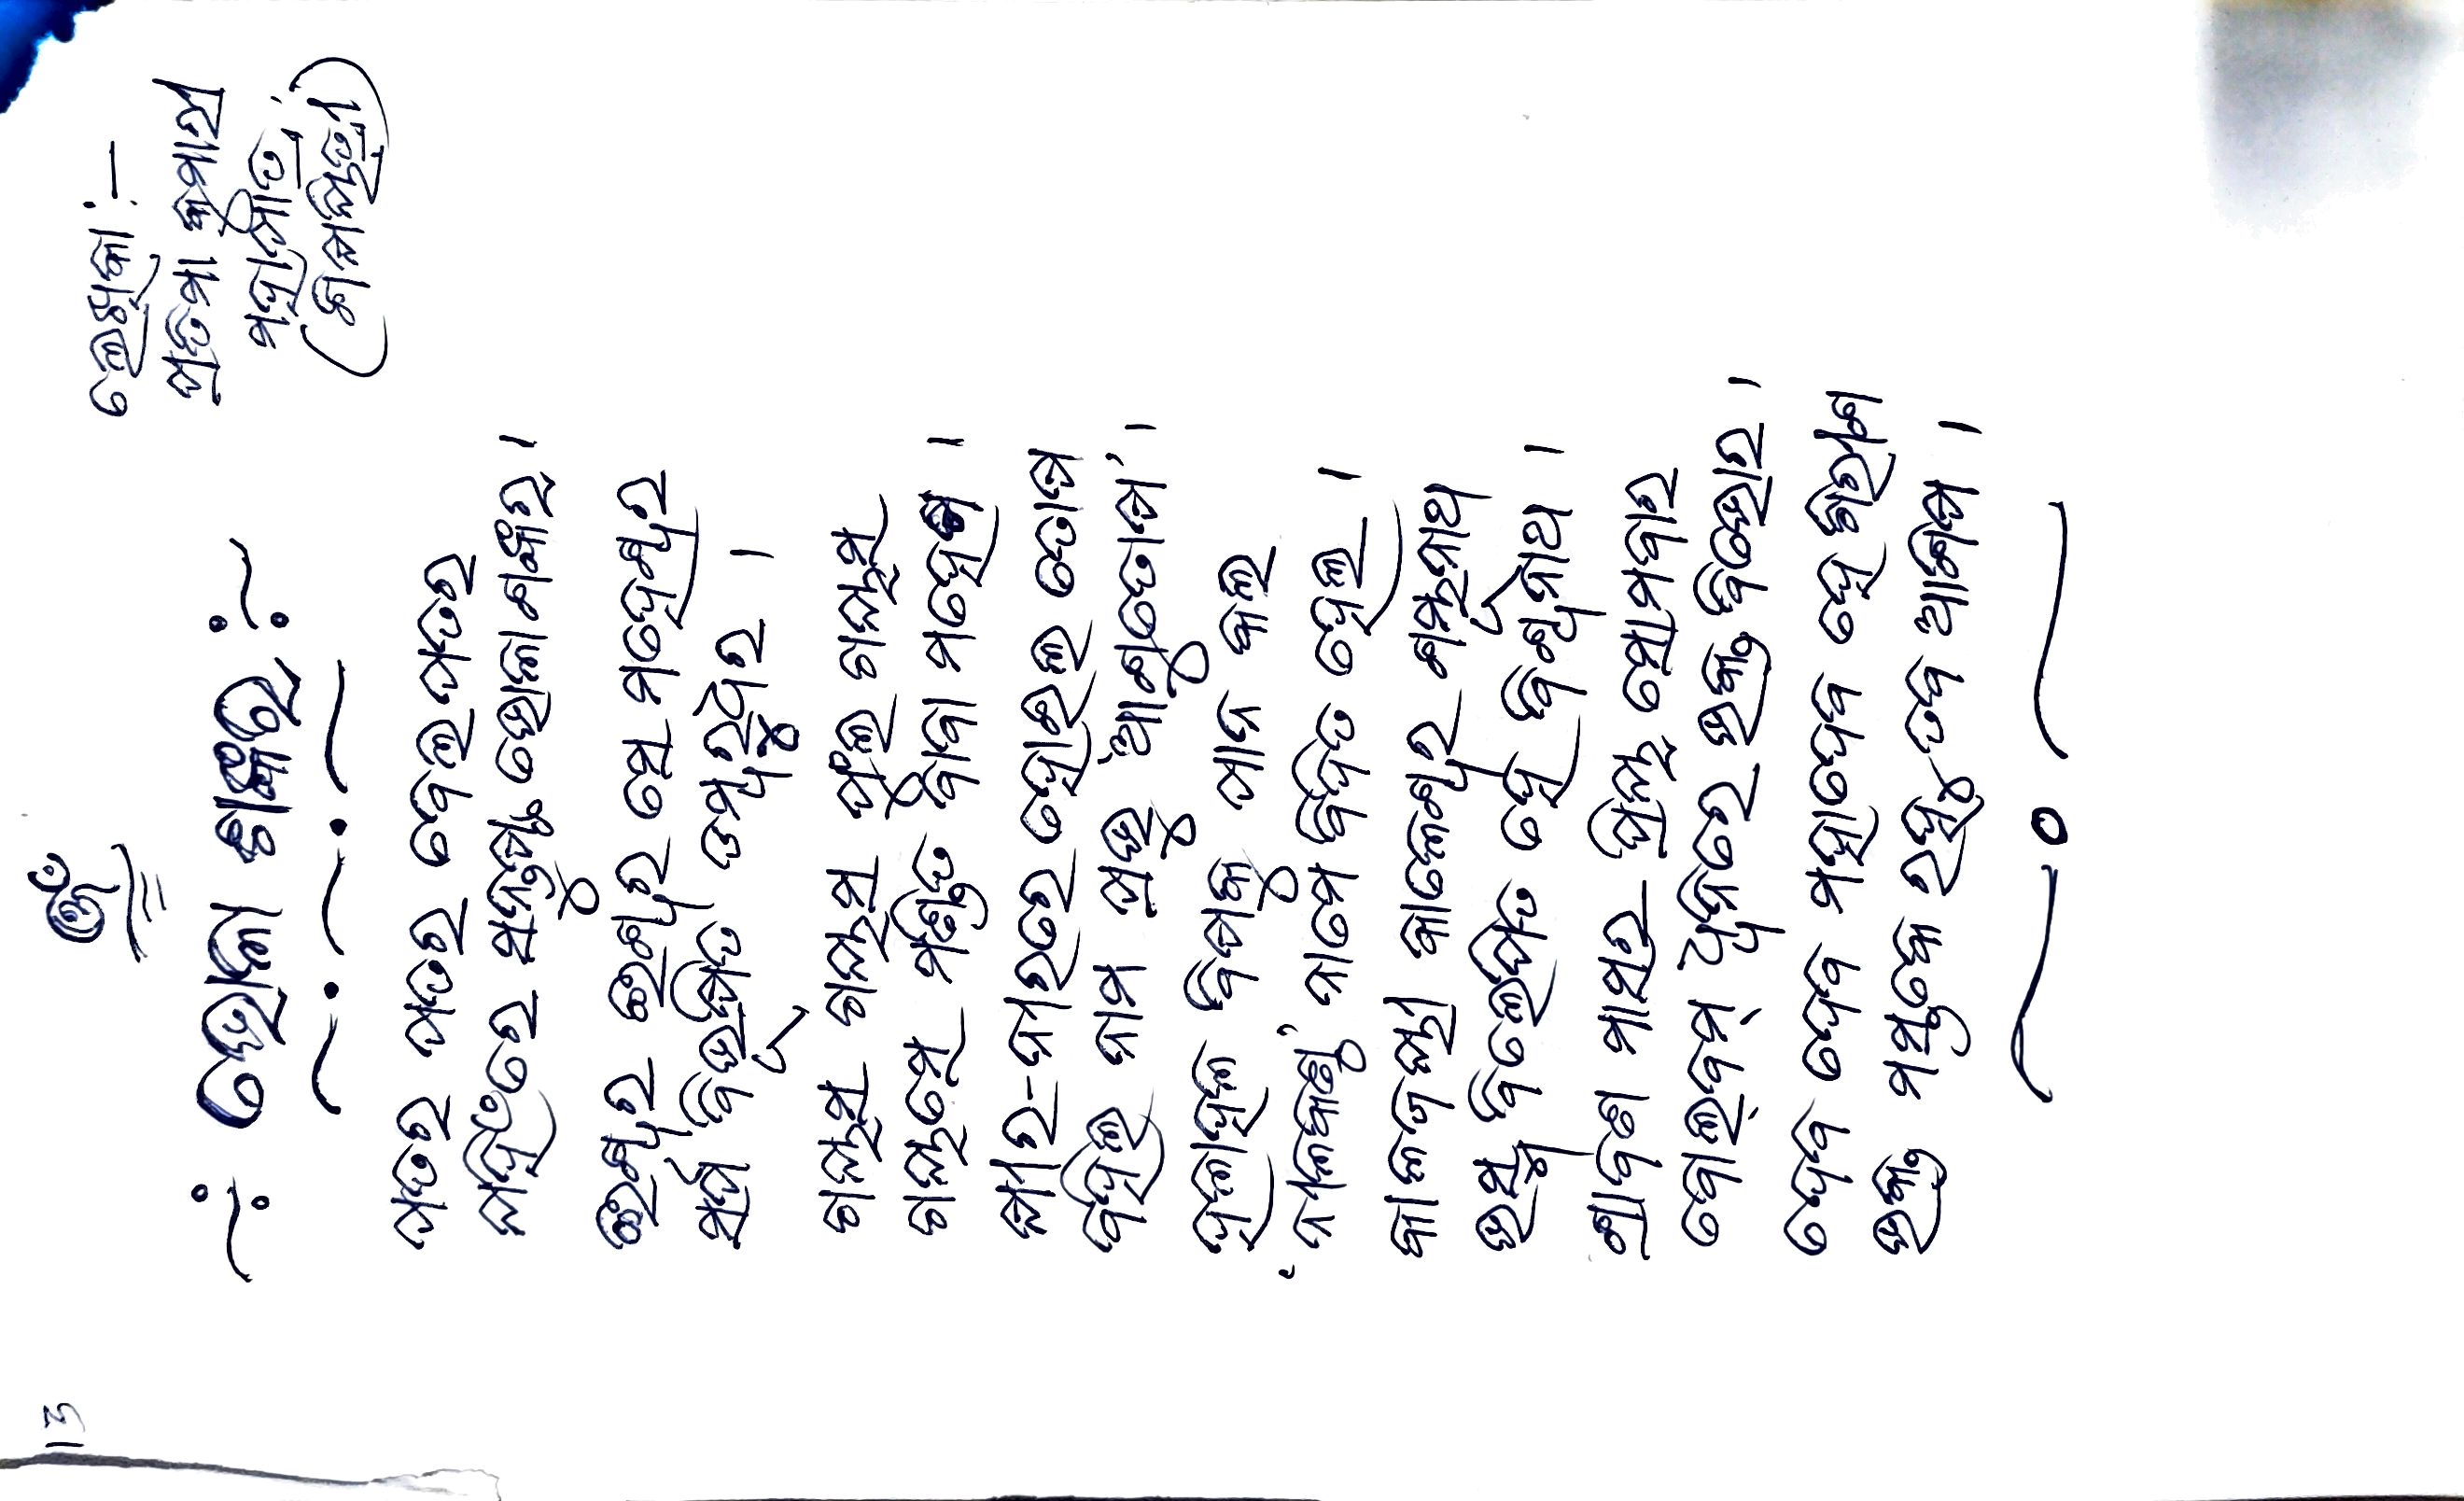 13
ଓଁ
ଲେଖିକା :—
ପ୍ରତିମା କୁମାରୀ
ମହାପାତ୍ର
(ଶିକ୍ଷୟିତ୍ରୀ)
~: ଭୋଳା ଶଙ୍କର :~
ପତର ପତର ବେଲ ପତର
ନାହିଁରେ ସନ୍ତୁଷ୍ଟ ଭୋଳା ଶଙ୍କର ।
ଈଶ୍ୱର ଈଶ୍ୱର ସେ ମହେଶ୍ୱର
ସର୍ପ ବିଭୂଷିତ ଡମ୍ବରୁଧର ।
ଗୟସ ଗୟସ ଫୁଲ ଗୟସ
ଗୟସେ ମଣ୍ଡିତ ବାବା ମହେଶ ।
କ୍ଷୀର-ନୀରରେ ହୋଇଲ ତୋଷ
ବହିଲ ନାମ ପ୍ରଭୁ 'ଆଶୁତୋଷ' ।
ହଳାହଳ ବିଷକୁ ପାନ କଲ
'ନୀଳକଣ୍ଠ' ନାମେ ବିଦିତ ହେଲ ।
କାଳଜୟୀ କାଳେଶ୍ୱର ଶମ୍ଭୂନାଥ
ଭସ୍ମ ବିଲେପିତ ହେ ବିଶ୍ୱନାଥ ।
ଶ୍ରାବଣ ମାସର ପ୍ରିୟ ସୋମବାର
ବୋଲ୍‌ବମ୍ ଧ୍ୱନିରେ ଭକ୍ତ ବିଭୋର ।
ଦେବ ଦେବ ମହାଦେବ ହେ ଗିରୀଶ
ଭକ୍ତ ମସ୍ତକେ ରହୁ ତବ ଆଶିଷ ।